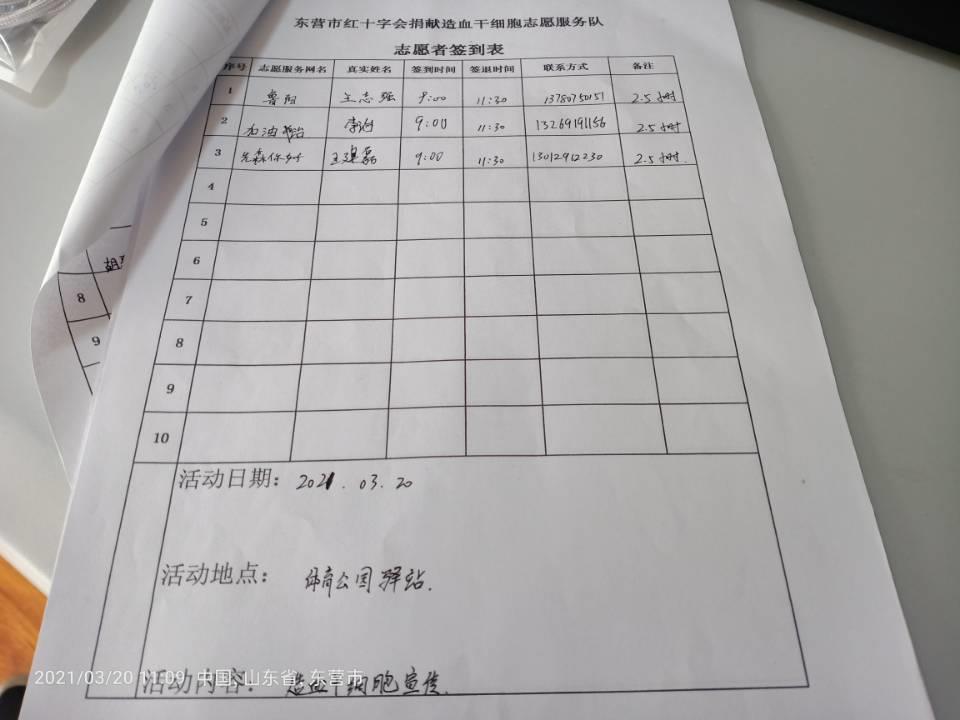 东营市红十字会捐献造血干细胞志愿服务队
志愿者签到表
序号 志愿服务网名 真实姓名 签到时间 签退时间 联系方式 备注
1 鲁阳 王志强 9:00 11:30 13780750151 2.5小时
2 加油 9:00 11:30 13269191156 2.5小时
3 先森你好 王建磊 9:00 11:30 13012912230 2.5小时.
4
5
6
7
8
9
10
胡
8
9
活动日期: 2021.03.20
活动地点: 体育公园驿站.
活动内容: 造血干细胞宣传.
2021/03/20 11:09 中国,山东省,东营市